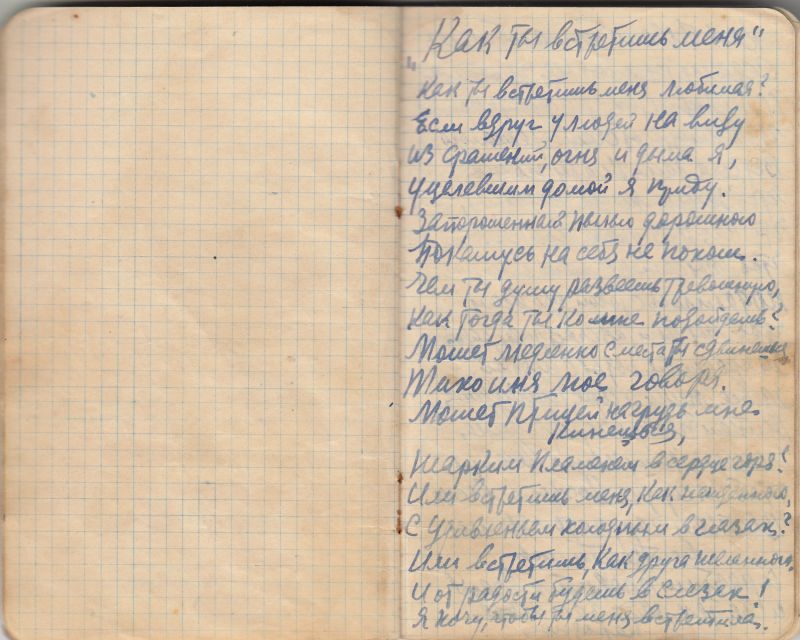 „Как ты встретишь меня"
Как ты встретишь меня любимая?
Если вдруг у людей на виду
из сражений, огня и дыма я,
уцелевшим домой я приду.
Запорошенный пылью дорожного
Покажусь на себя не похож.
Чем ты душу развеешь тревожную,
как тогда ты ко мне подойдешь?
Может медленно с места ты сдвинешься
Тихо имя мое говоря.
Может птицей на грудь мне
кинешься,
Жарким пламенем в сердце горя?
Или встретишь меня, как
С удивленьем холодным в глазах?
Или встретишь, как друга желанного,
И от радости будешь в слезах!
Я хочу, чтобы ты меня встретила